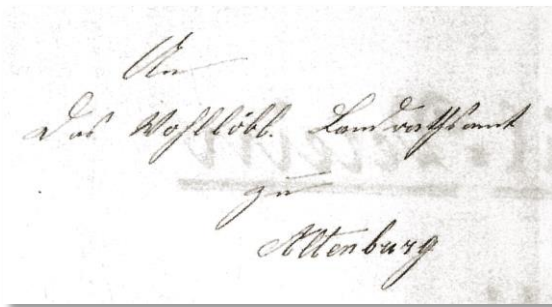 An
Das Wohllöbl. Landrathsamt
zu
Altenburg